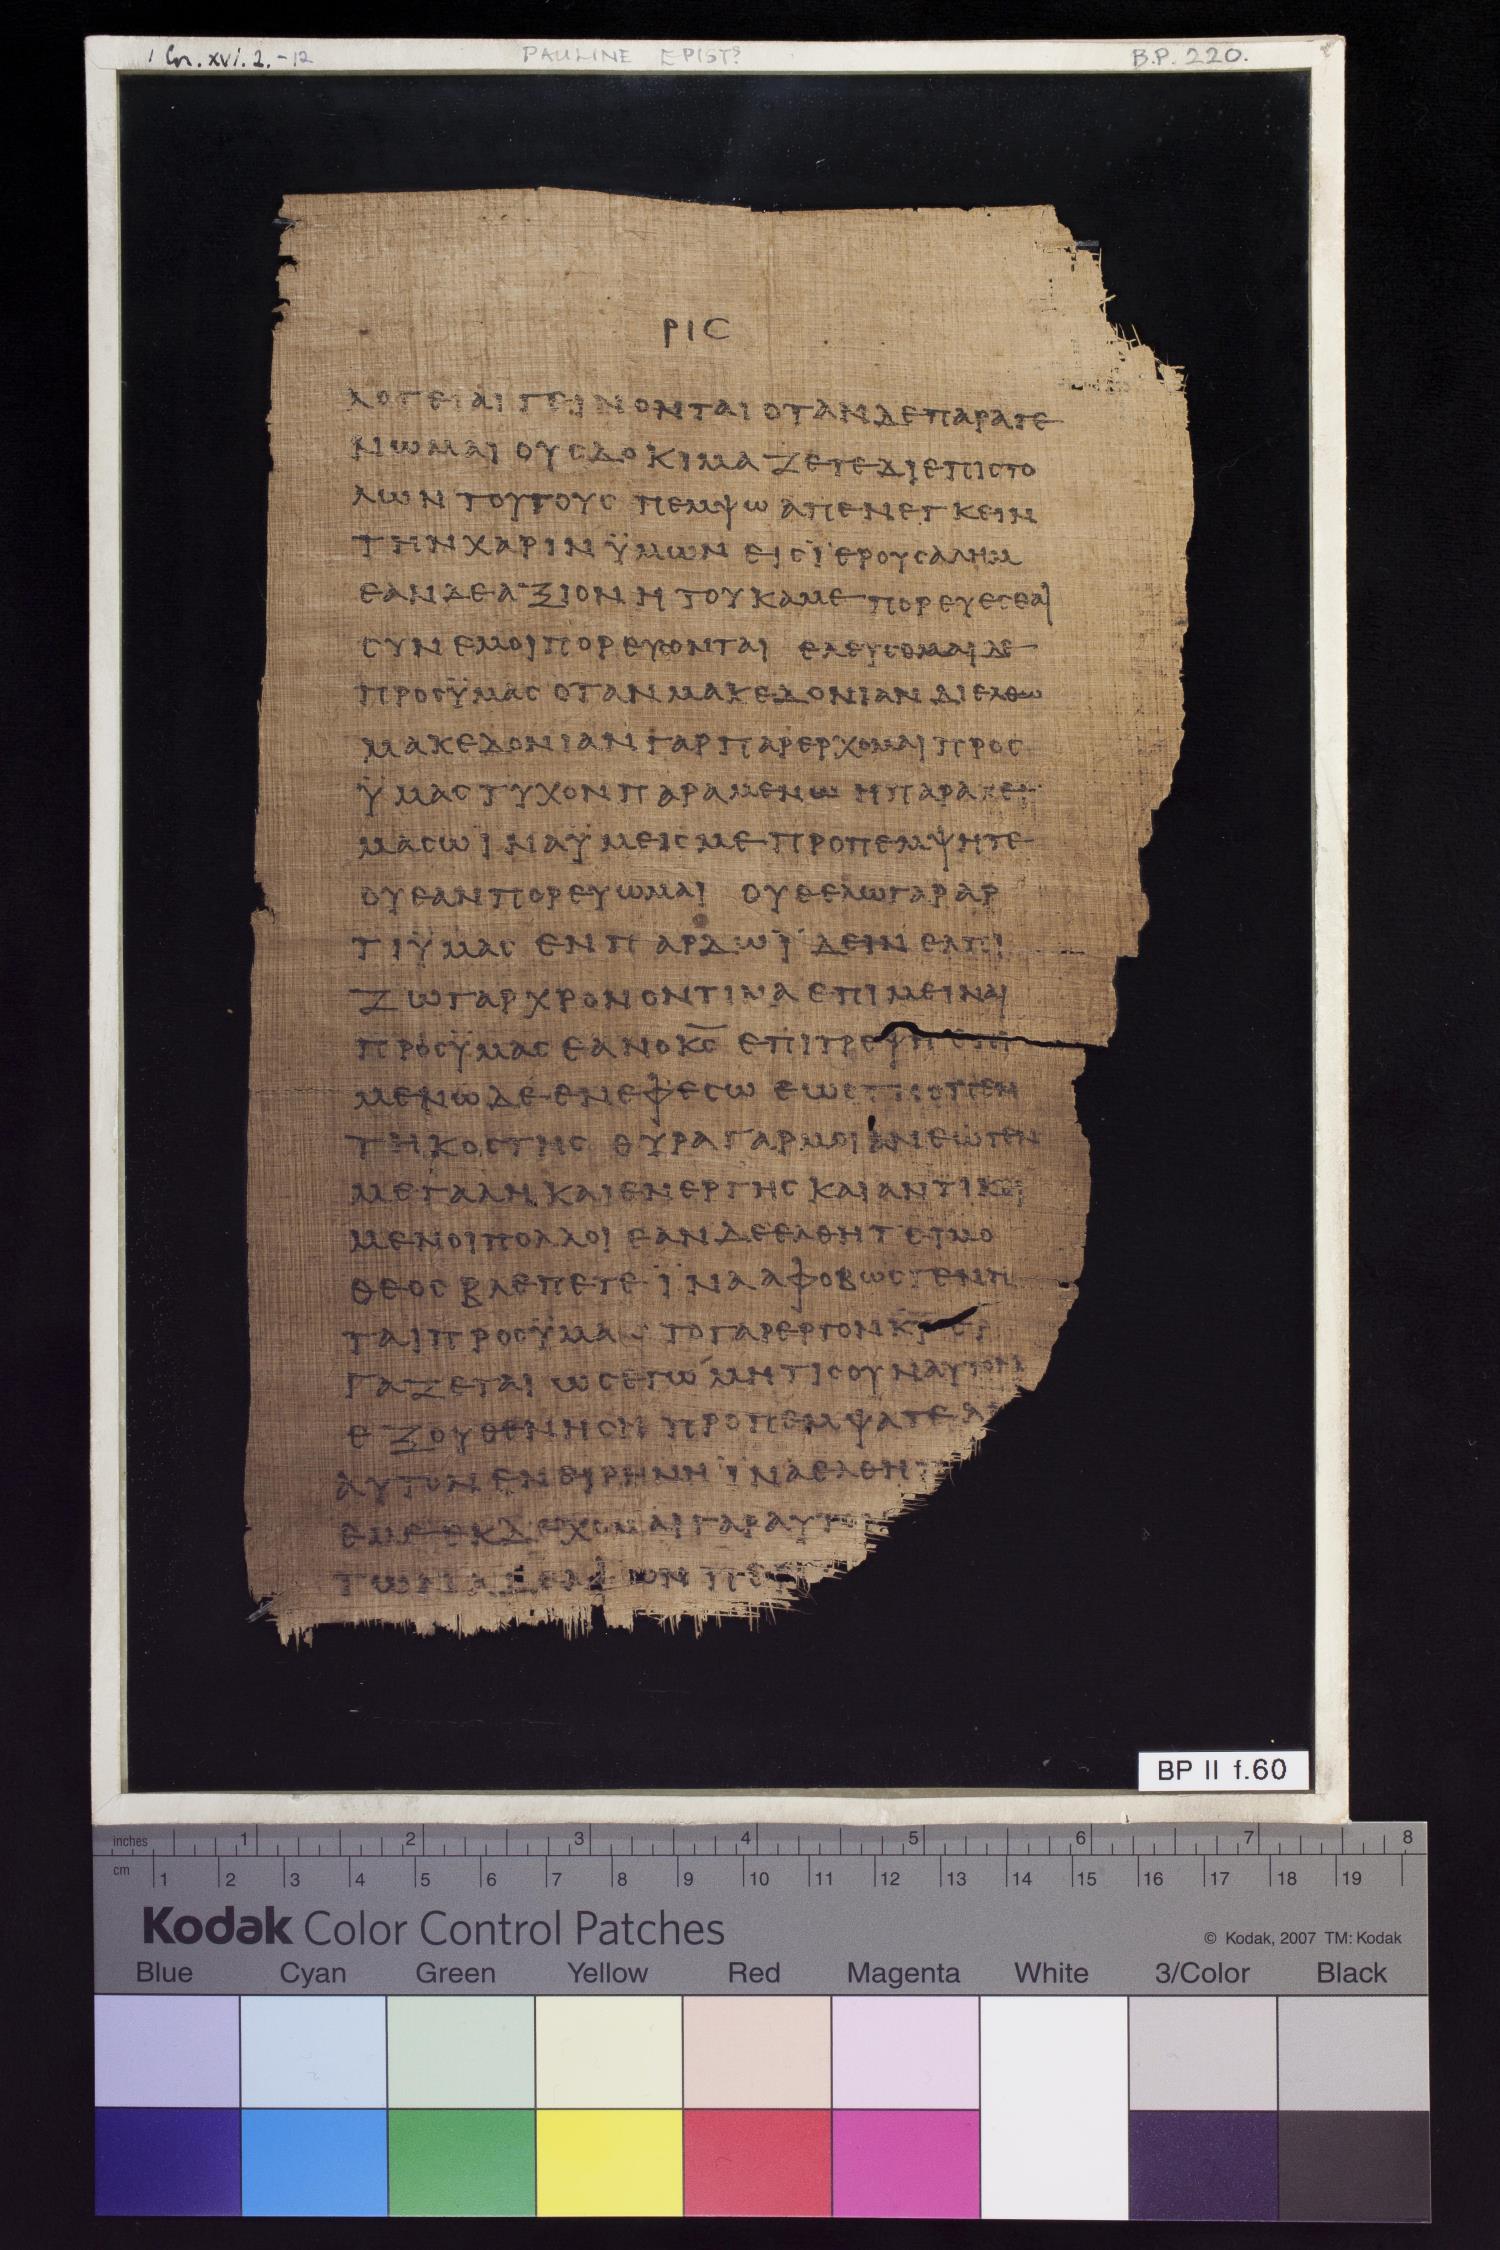 1 Cor. xvi. 2.-12 PAULINE EPISTS B.P. 220.
ΡΙϹ
ΛΟΓΕΙΑΙ ΓΕΙΝΟΝΤΑΙ ΟΤΑΝ ΔΕ ΠΑΡΑΓΕ
ΝΩΜΑΙ ΟΥϹ ΔΟΚΙΜΑΖΕΤΕ ΔΙ ΕΠΙϹΤΟ
ΛΩΝ ΤΟΥΤΟΥϹ ΠΕΜΨΩ ΑΠΕΝΕΓΚΕΙΝ
ΤΗΝ ΧΑΡΙΝ ΫΜΩΝ ΕΙϹ ΪΕΡΟΥϹΑΛΗΜ
ΕΑΝ ΔΕ ΑΞΙΟΝ Η ΤΟΥ ΚΑΜΕ ΠΟΡΕΥΕϹΘΑΙ
ϹΥΝ ΕΜΟΙ ΠΟΡΕΥϹΟΝΤΑΙ ΕΛΕΥϹΟΜΑΙ ΔΕ
ΠΡΟϹ ΫΜΑϹ ΟΤΑΝ ΜΑΚΕΔΟΝΙΑΝ ΔΙΕΛΘΩ
ΜΑΚΕΔΟΝΙΑΝ ΓΑΡ ΠΑΡΕΡΧΟΜΑΙ ΠΡΟϹ
ΫΜΑϹ ΤΥΧΟΝ ΠΑΡΑΜΕΝΩ Η ΠΑΡΑΧΕΙ
ΜΑϹΩ ΙΝΑ ΫΜΕΙϹ ΜΕ ΠΡΟΠΕΜΨΗΤΕ
ΟΥ ΕΑΝ ΠΟΡΕΥΩΜΑΙ ΟΥ ΘΕΛΩ ΓΑΡ ΑΡ
ΤΙ ΫΜΑϹ ΕΝ ΠΑΡΔΩ ΪΔΕΙΝ ΕΛΠΙ
ΖΩ ΓΑΡ ΧΡΟΝΟΝ ΤΙΝΑ ΕΠΙΜΕΙΝΑΙ
ΠΡΟϹ ΫΜΑϹ ΕΑΝ Ο Κ̅Ϲ̅ ΕΠΙΤΡΕΨΗ ΕΠΙ
ΜΕΝΩ ΔΕ ΕΝ ΕΦΕϹΩ ΕΩϹ ΤΗϹ ΠΕΝ
ΤΗΚΟϹΤΗϹ ΘΥΡΑ ΓΑΡ ΜΟΙ ΑΝΕΩΓΕΝ
ΜΕΓΑΛΗ ΚΑΙ ΕΝΕΡΓΗϹ ΚΑΙ ΑΝΤΙΚΕΙ
ΜΕΝΟΙ ΠΟΛΛΟΙ ΕΑΝ ΔΕ ΕΛΘΗ ΤΕΙΜΟ
ΘΕΟϹ ΒΛΕΠΕΤΕ ΪΝΑ ΑΦΟΒΩϹ ΓΕΝΗ
ΤΑΙ ΠΡΟϹ ΫΜΑϹ ΤΟ ΓΑΡ ΕΡΓΟΝ Κ̅Υ̅ ΕΡ
ΓΑΖΕΤΑΙ ΩϹ ΕΓΩ ΜΗ ΤΙϹ ΟΥΝ ΑΥΤΟΝ
ΕΞΟΥΘΕΝΗϹΗ ΠΡΟΠΕΜΨΑΤΕ
ΑΥΤΟΝ ΕΝ ΕΙΡΗΝΗ ΪΝΑ ΕΛΘΗ
ΕΜΕ ΕΚΔΕΧΟΜΑΙ ΓΑΡ ΑΥΤΟΝ
ΤΩΝ ΑΔΕΛΦΩΝ
BP II f.60
inches 1 2 3 4 5 6 7 8
cm 1 2 3 4 5 6 7 8 9 10 11 12 13 14 15 16 17 18 19
Kodak Color Control Patches © Kodak, 2007 TM: Kodak
Blue Cyan Green Yellow Red Magenta White 3/Color Black